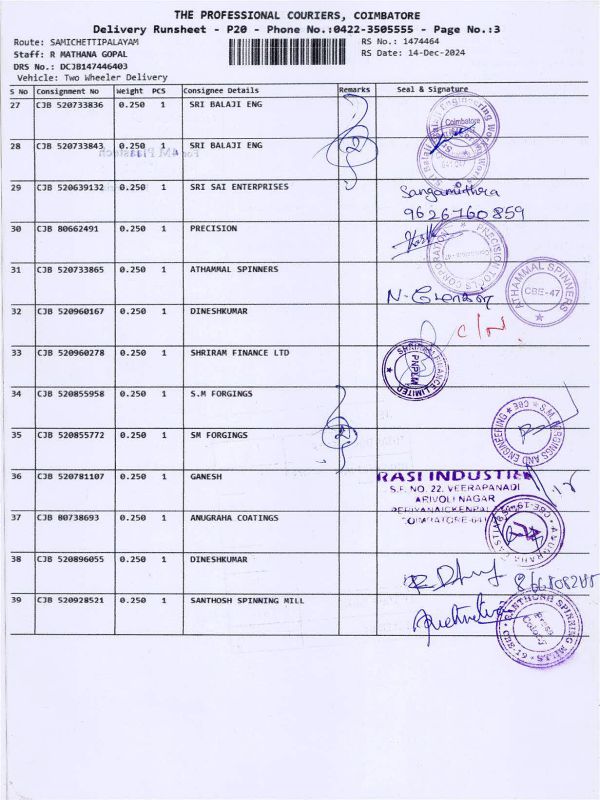 THE PROFESSIONAL COURIERS, COIMBATORE
Delivery Runsheet - P20 - Phone No.:0422-3505555 - Page No.:3
Route: SAMICHETTIPALAYAM
RS No.: 1474464
Staff: R MATHANA GOPAL
RS Date: 14-Dec-2024
DRS No.: DCJB147446403
Vehicle: Two Wheeler Delivery
S No Consignment No Weight PCS Consignee Details Remarks Seal & Signature
27 CJB 520733836 0.250 1 SRI BALAJI ENG
Coimbatore
28 CJB 520733843 0.250 1 SRI BALAJI ENG 2
29 CJB 520639132 0.250 1 SRI SAI ENTERPRISES Sangamithra
9626760859
30 CJB 80662491 0.250 1 PRECISION
PRECISION TOOLS CORPORATION
31 CJB 520733865 0.250 1 ATHAMMAL SPINNERS
ATHAMMAL SPINNERS CBE-47
32 CJB 520960167 0.250 1 DINESHKUMAR C/N.
33 CJB 520960278 0.250 1 SHRIRAM FINANCE LTD
SHRIRAM FINANCE LIMITED PNPLM
34 CJB 520855958 0.250 1 S.M FORGINGS
S.M. FORGINGS AND ENGINEERING CBE
35 CJB 520855772 0.250 1 SM FORGINGS 2
36 CJB 520781107 0.250 1 GANESH
RASI INDUSTRIES
S.F. NO. 22, VEERAPANADI
ARIVOLI NAGAR
PERIYANAICKENPAL
COIMBATORE-641
37 CJB 80738693 0.250 1 ANUGRAHA COATINGS
38 CJB 520896055 0.250 1 DINESHKUMAR
39 CJB 520928521 0.250 1 SANTHOSH SPINNING MILL
SANTHOSH SPINNING MILLS